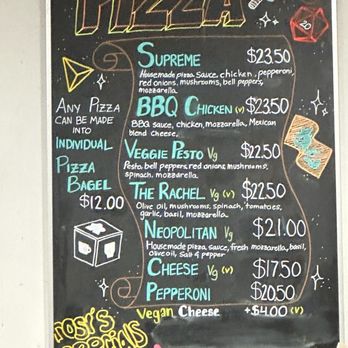 PIZZA
20
SUPREME $23.50
Housemade pizza sauce, chicken, pepperoni,
red onions, mushrooms, bell peppers,
mozzarella.
BBQ CHICKEN (v) $23.50
BBQ sauce, chicken, mozzarella, Mexican
blend cheese.
VEGGIE PESTO Vg $22.50
Pesto, bell peppers, red onions, mushrooms,
spinach, mozzarella.
THE RACHEL Vg (v) $22.50
Olive oil, mushrooms, spinach, tomatoes,
garlic, basil, mozzarella.
NEOPOLITAN Vg $21.00
Housemade pizza sauce, fresh mozzarella, basil,
olive oil, salt & pepper.
CHEESE Vg (v) $17.50
PEPPERONI $20.50
Vegan Cheese +$4.00 (v)
ANY PIZZA
CAN BE MADE
INTO
INDIVIDUAL
PIZZA
BAGEL
$12.00